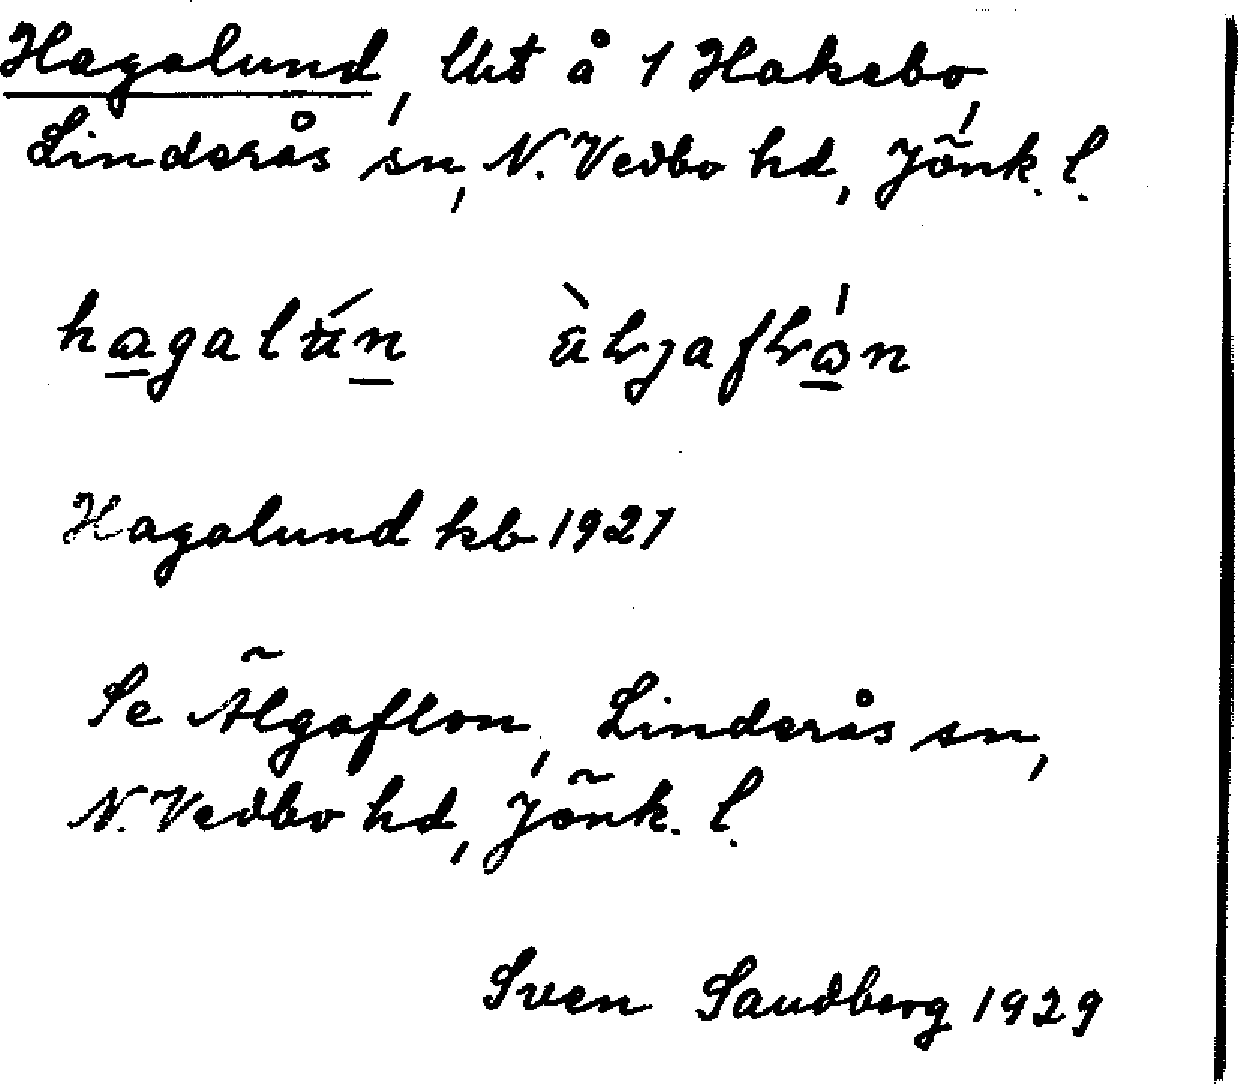 Hagalund, lht å 1 Hakebo,
Linderås sn, N. Vedbo hd, Jönk. l.
hagalún
Hagalund kb 1927
Se Älgaflon, Linderås sn,
N. Vedbo hd, Jönk. l.
Sven Sandberg 1929